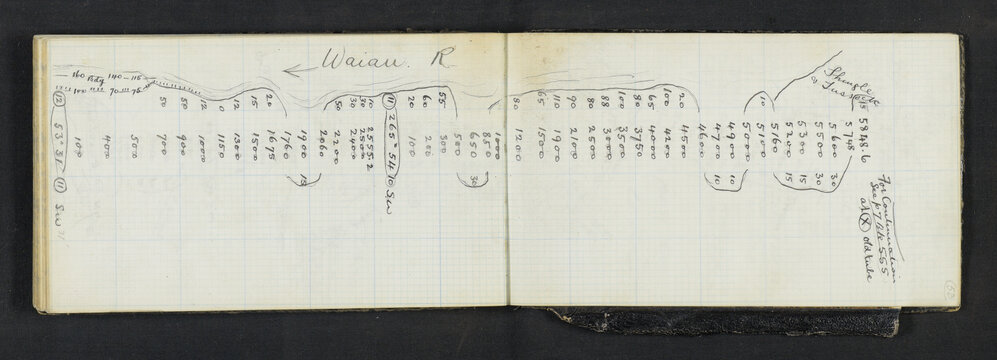 Waiau. R.
For Continuation
See p 7 Bk 555
at Ⓧ old tube
Shingle &c
5848.6
5748
5600 30
5500 30
5300 15
5200 15
5160
10 5100
5000
4900 10
4700 10
4600
20 4500
100 4200
65 4000
80 3750
100 3500
88 3000
80 2500
90 2100
110 1900
65 1500
80 1200
1000
850
650 30
500
55 300
60 200
20 100
⑪ 265° 54' 10
10 2555.2
30 2500
30
50 2200
2060
1900 15
1760
20 1675
15 1500
12 1300
0 1150
12 1000
50 900
50 700
500
400
100
⑫ 53° 31' ⑪
160 Bdy 140 — 115
100 70